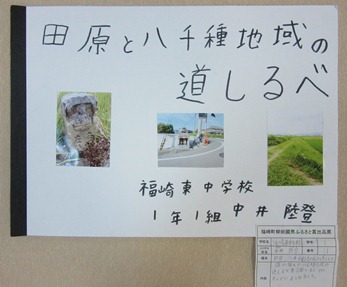 田原と八千種地域の
道しるべ
福崎東中学校
1年1組 中井 陸登
福崎町柳田國男ふるさと賞出品票